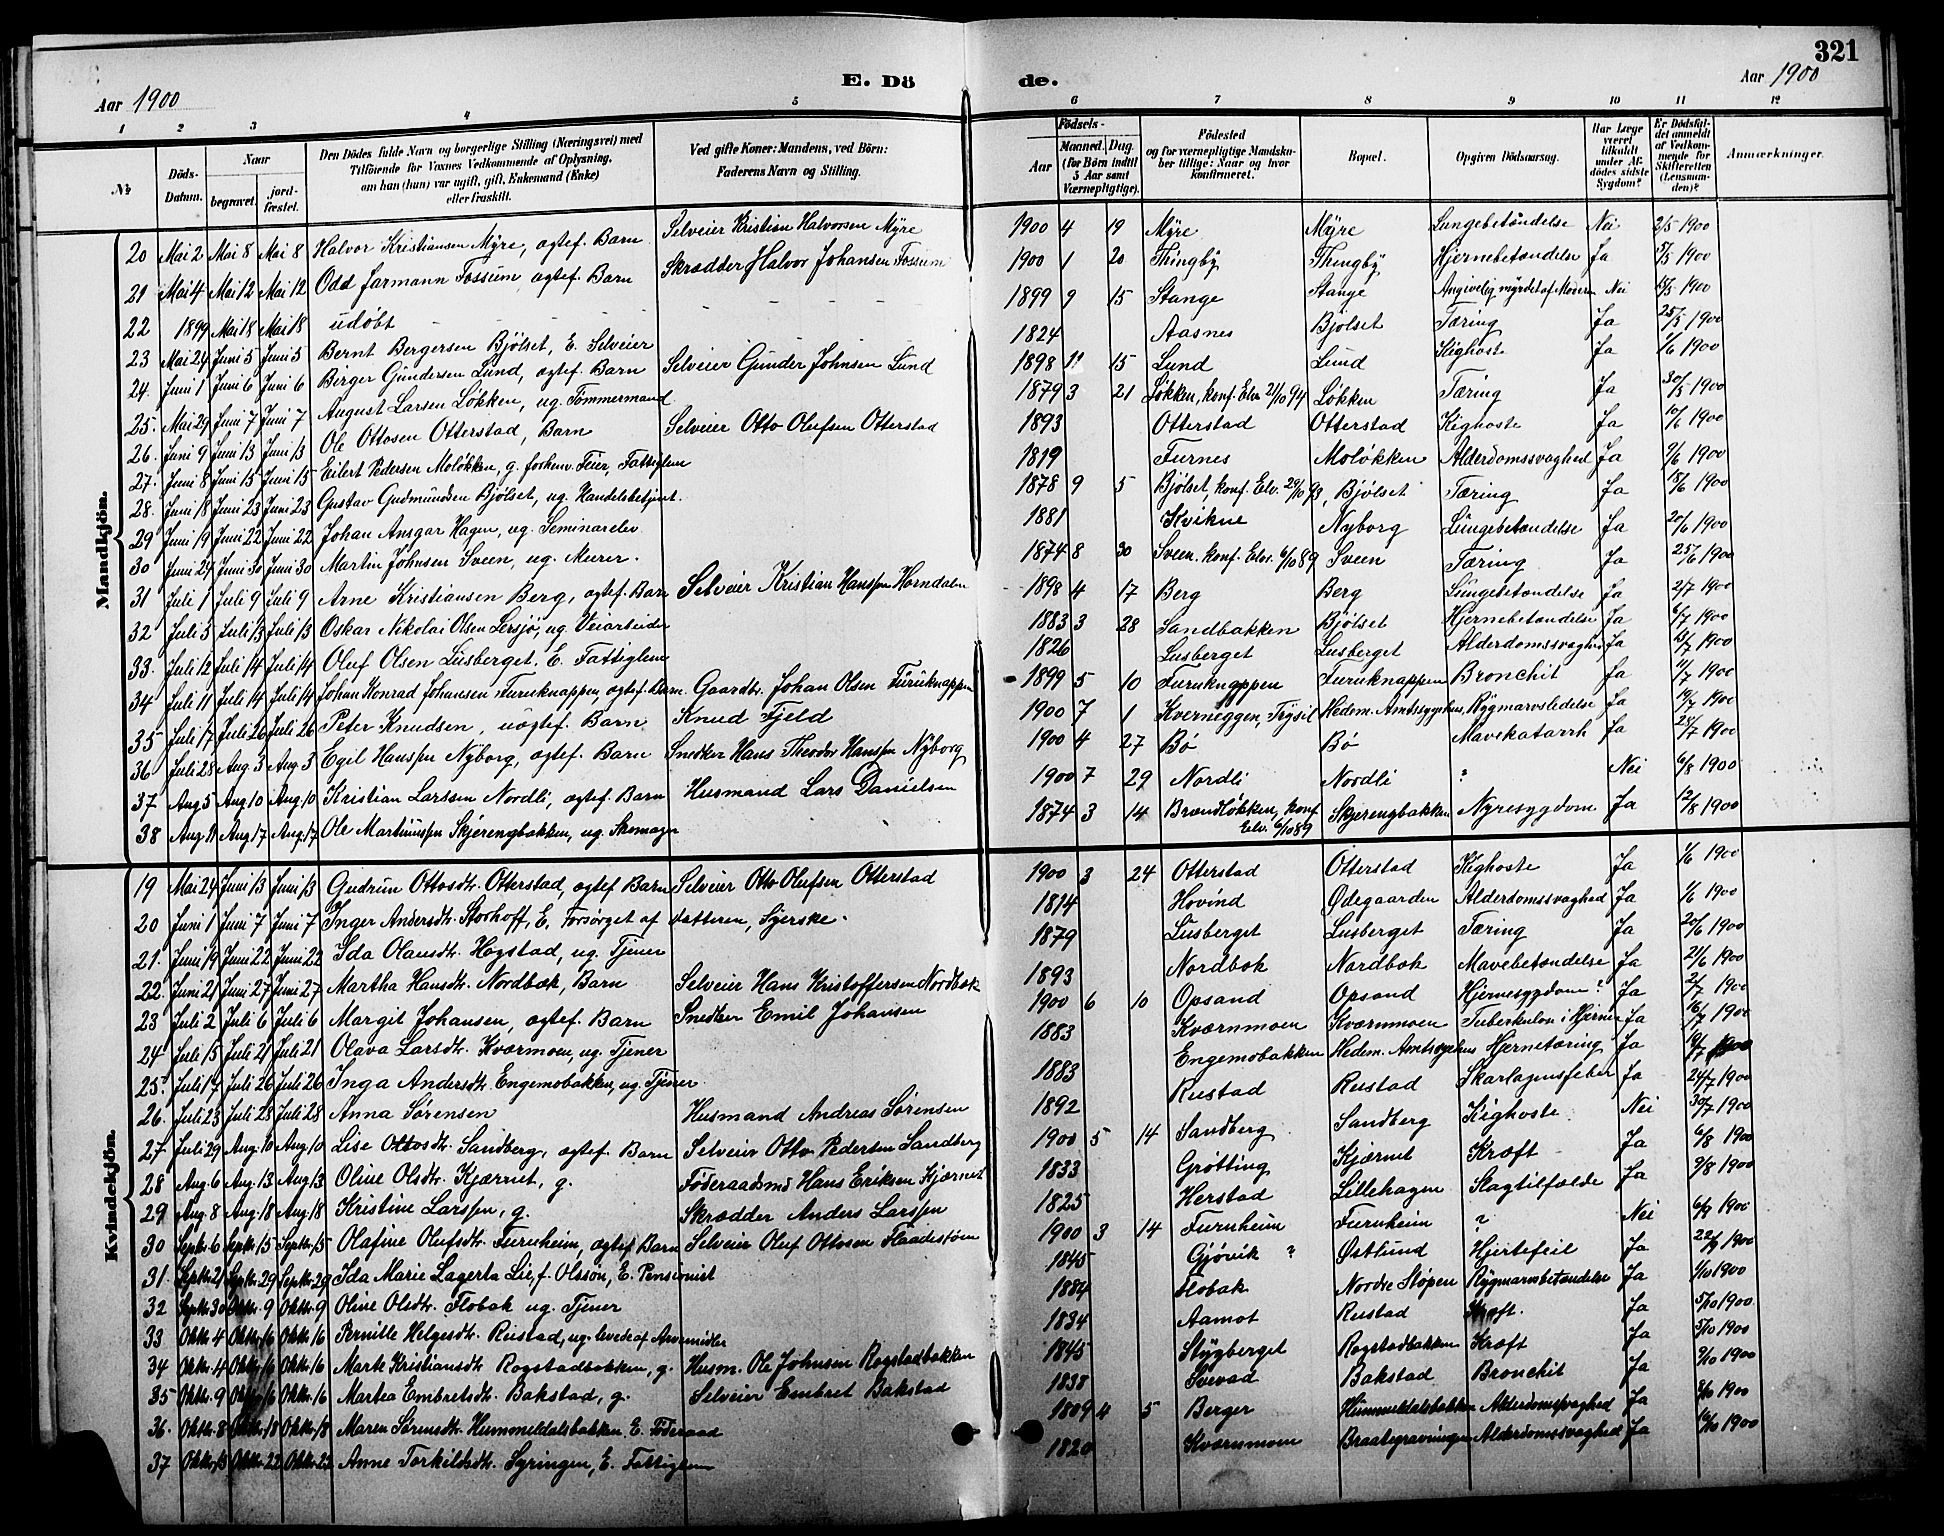 321
E. Dö de.
Aar 1900
Aar 1900
1 2 3 4 5 6 7 8 9 10 11 12
№
Döds-Datum.
Naar begravet. jordfæstet.
Den Dödes fulde Navn og borgerlige Stilling (Næringsvei) med Tilföiende for Voxnes Vedkommende af Oplysning, om han (hun) var ugift, gift, Enkemand (Enke) eller fraskilt.
Ved gifte Koner: Mandens, ved Börn: Faderens Navn og Stilling.
Födsels-
Aar
Maaned. Dag. (for Börn indtil 5 Aar samt Værnepligtige).
Födested og for værnepligtige Mandskaber tillige: Naar og hvor konfirmeret.
Bopæl.
Opgiven Dödsaarsag.
Har Læge været tilkaldt under Afdödes sidste Sygdom?
Er Dödsfaldet anmeldt af Vedkommende for Skifteretten (Lensmanden)?
Anmærkninger.
Mandkjön.
20 Mai 2 Mai 8 Mai 8 Halvor Kristiansen Myre, egtef. Barn Selveier Kristian Halvorsen Myre 1900 4 19 Myre Myre Lungebetændelse Nei 2/5 1900
21 Mai 4 Mai 12 Mai 12 Odd Jarmann Fossum, egtef. Barn Skrædder Halvor Johansen Fossum 1900 1 20 Thingby Thingby Hjernebetændelse Ja 5/5 1900
22 1899 Mai 18 Mai 18 udöbt - - - - 1899 9 15 Stange Stange Angivelig myrdet af Moderen Nei 15/5 1900
23 Mai 24 Juni 5 Juni 5 Bernt Bergersen Bjölset, E. Selveier 1824 Aasnes Bjölset Tæring Ja 25/5 1900
24. Juni 1 Juni 6 Juni 6 Birger Gundersen Lund, egtef. Barn Selveier Gunder Johnsen Lund 1898 11 15 Lund Lund Kighoste Ja 1/6 1900
25. Mai 29 Juni 7 Juni 7 August Larsen Lökken, ug. Tömmermand 1879 3 21 Lökken, konf. Elv. 21/10 94 Lökken Tæring Ja 30/5 1900
26. Juni 9 Juni 13 Juni 13 Ole Ottosen Otterstad, Barn Selveier Otto Olufsen Otterstad 1893 Otterstad Otterstad Kighoste Ja 10/6 1900
27. Juni 8 Juni 15 Juni 15 Eilert Pedersen Molökken, g. forhenv. Feier, Fattiglem 1819 Furnes Molökken Alderdomssvaghed Ja 9/6 1900
28. Juni 18 Juni 23 Juni 23 Gustav Gudmundsen Bjölset, ug. Handelsbetjent. 1878 9 5 Bjölset, konf. Elv. 29/10 93, Bjölset Tæring Ja 18/6 1900
29 Juni 19 Juni 22 Juni 22 Johan Ansgar Hagen, ug. Seminarelev 1881 Kvikne Nyborg Lungebetændelse Ja 20/6 1900
30 Juni 24 Juni 30 Juni 30 Martin Johnsen Sveen, ug. Murer. 1874 8 30 Sveen. konf. Elv. 6/10 89 Sveen Tæring Ja 25/6 1900
31 Juli 1 Juli 9 Juli 9 Arne Kristiansen Berg, egtef. Barn Selveier Kristian Hanssen Horndalen 1898 4 17 Berg Berg Lungebetændelse Ja 2/7 1900
32 Juli 3 Juli 13 Juli 13 Oskar Nikolai Olsen Lersjö, ug. Veiarbeider 1883 3 28 Sandbakken Bjölset Hjernebetændelse Ja 6/7 1900
33. Juli 12 Juli 14 Juli 14 Oluf Olsen Lusberget. E. Fattiglem 1826 Lusberget Lusberget Alderdomssvaghed Ja 13/7 1900
34 Juli 11 Juli 14 Juli 14 Johan Konrad Johansen Furuknappen, egtef. Barn. Gaardbr. Johan Olsen Furuknappen 1899 5 10 Furuknappen Furuknappen Bronchit Ja 11/7 1900
35 Juli 17 Juli 26 Juli 26 Peter Knudsen, uegtef. Barn Knud Fjeld 1900 7 1 Kverneggen, Trysil Hedem. Amtssygehus Rygmarvslidelse Ja 19/7 1900
36 Juli 28 Aug. 3 Aug 3 Egil Hanssen Nyborg, egtef. Barn Snedker Hans Theodor Hanssen Nyborg 1900 4 27 Bö Bö Mavekatarrh Ja 28/7 1900
37 Aug 5 Aug 10 Aug 10 Kristian Larssen Nordli, egtef. Barn Husmand Lars Danielsen 1900 7 29 Nordli Nordli ? Nei 6/8 1900
38 Aug 11 Aug 17 Aug. 17 Ole Martinussen Skjerengbakken, ug. Skomager 1874 3 14 Brændlökken, konf Elv. 6/10 89 Skjerengbakken Nyresygdom Ja 12/8 1900
Kvindekjön.
19 Mai 24 Juni 13 Juni 13 Gudrun Ottosdtr. Otterstad, egtef Barn Selveier Otto Olufsen Otterstad 1900 3 24 Otterstad Otterstad Kighoste Ja 1/6 1900
20 Juni 1 Juni 7 Juni 7 Inger Andersdtr. Storhoff, E. Forsörget af datteren, Syerske. 1814 Hovind Ödegaarden Alderdomssvaghed Ja 1/6 1900
21. Juni 19 Juni 22 Juni 22 Ida Olausdtr. Hogstad, ug. Tjener 1879 Lusberget Lusberget Tæring Ja 20/6 1900
22. Juni 21 Juni 27 Juni 27 Martha Hansdtr. Nordbæk, Barn Selveier Hans Kristoffersen Nordbæk 1893 Nordbæk Nordbæk Mavebetændelse Ja 21/6 1900
23 Juli 2 Juli 6 Juli 6 Margit Johansen, egtef. Barn Snedker Emil Johansen 1900 6 10 Opsand Opsand Hjernesygdom? Ja 2/7 1900
24 Juli 15 Juli 21 Juli 21 Olava Larsdtr. Kværnmoen, ug. Tjener 1883 Kværnmoen Kværnmoen Tuberkulose i Hjernen Ja 16/7 1900
25. Juli 17 Juli 26 Juli 26 Inga Andersdtr. Engemobakken, ug. Tjener 1883 Engemobakken Hedem. Amtssygehus Hjernetæring Ja 18/7 1900
26. Juli 23 Juli 28 Juli 28 Anna Sörensen Husmand Andreas Sörensen 1892 Rustad Rustad Skarlagensfeber Ja 24/7 1900
27 Juli 29 Aug. 10 Aug 10 Lise Ottosdtr. Sandberg, egtef. Barn Selveier Otto Pedersen Sandberg 1900 5 14 Sandberg Sandberg Kighoste Nei 30/7 1900
28 Aug. 6 Aug. 13 Aug 13 Oline Olsdtr. Kjærnet, g. Föderaadsmd Hans Eriksen Kjærnet 1833 Grötting Kjærnet Kræft Ja 6/8 1900
29 Aug. 8 Aug. 18 Aug 18 Kristine Larssen, g. Skrædder Anders Larssen 1825 Herstad Lillehagen Slagtilfælde Ja 9/8 1900
30 Septbr 6 Septbr 15 Septbr 15 Olafine Olufsdtr. Furnheim, egtef Barn Selveier Oluf Ottosen Flaadestöen 1900 3 14 Furnheim Furnheim ? Nei 6/9 1900
31. Septbr 21 Septbr 29 Septbr 29 Ida Marie Lagerta Lie, f. Olsson, E. Pensionist 1845 Gjövik ? Östlund Hjertefeil Ja 22/9 1900
32 Septbr 30 Oktbr. 9 Oktbr 9 Oline Olsdtr. Flobak ug. Tjener 1884 Flobak Nordre Stöpen Rygmarvsbetændelse Ja 1/10 1900
33 Oktbr 4 Oktbr 16 Oktbr 16 Pernille Helgesdtr. Rustad, ug. levede af Arvemidler 1834 Aamot Rustad Kræft. Ja 5/10 1900
34 Oktbr. 4 Oktbr 16 Oktbr 16 Marte Kristiansdtr. Rogstadbakken, g. Husm. Ole Johnsen Rogstadbakken 1845 Stygberget Rogstadbakken Kræft Ja 5/10 1900
35 Oktbr. 9 Oktbr 16 Oktbr 16 Martea Embretsdtr. Bakstad, g. Selveier Embret Bakstad 1838 Svevad Bakstad Bronchit Ja 9/10 1900
36. Oktbr. 8 Oktbr. 18 Oktbr. 18 Maren Sörensdtr. Hummeldalsbakken, E. Föderaad 1809 4 5 Berger Hummeldalsbakken Alderdomssvaghed Ja 9/10 1900
37 Oktbr. 13 Oktbr. 22 Oktbr. 22 Anne Torkildsdtr. Syringen, E. Fattiglem 1820 Kværnmoen Braategravningen Alderdomssvaghed Ja 14/10 1900